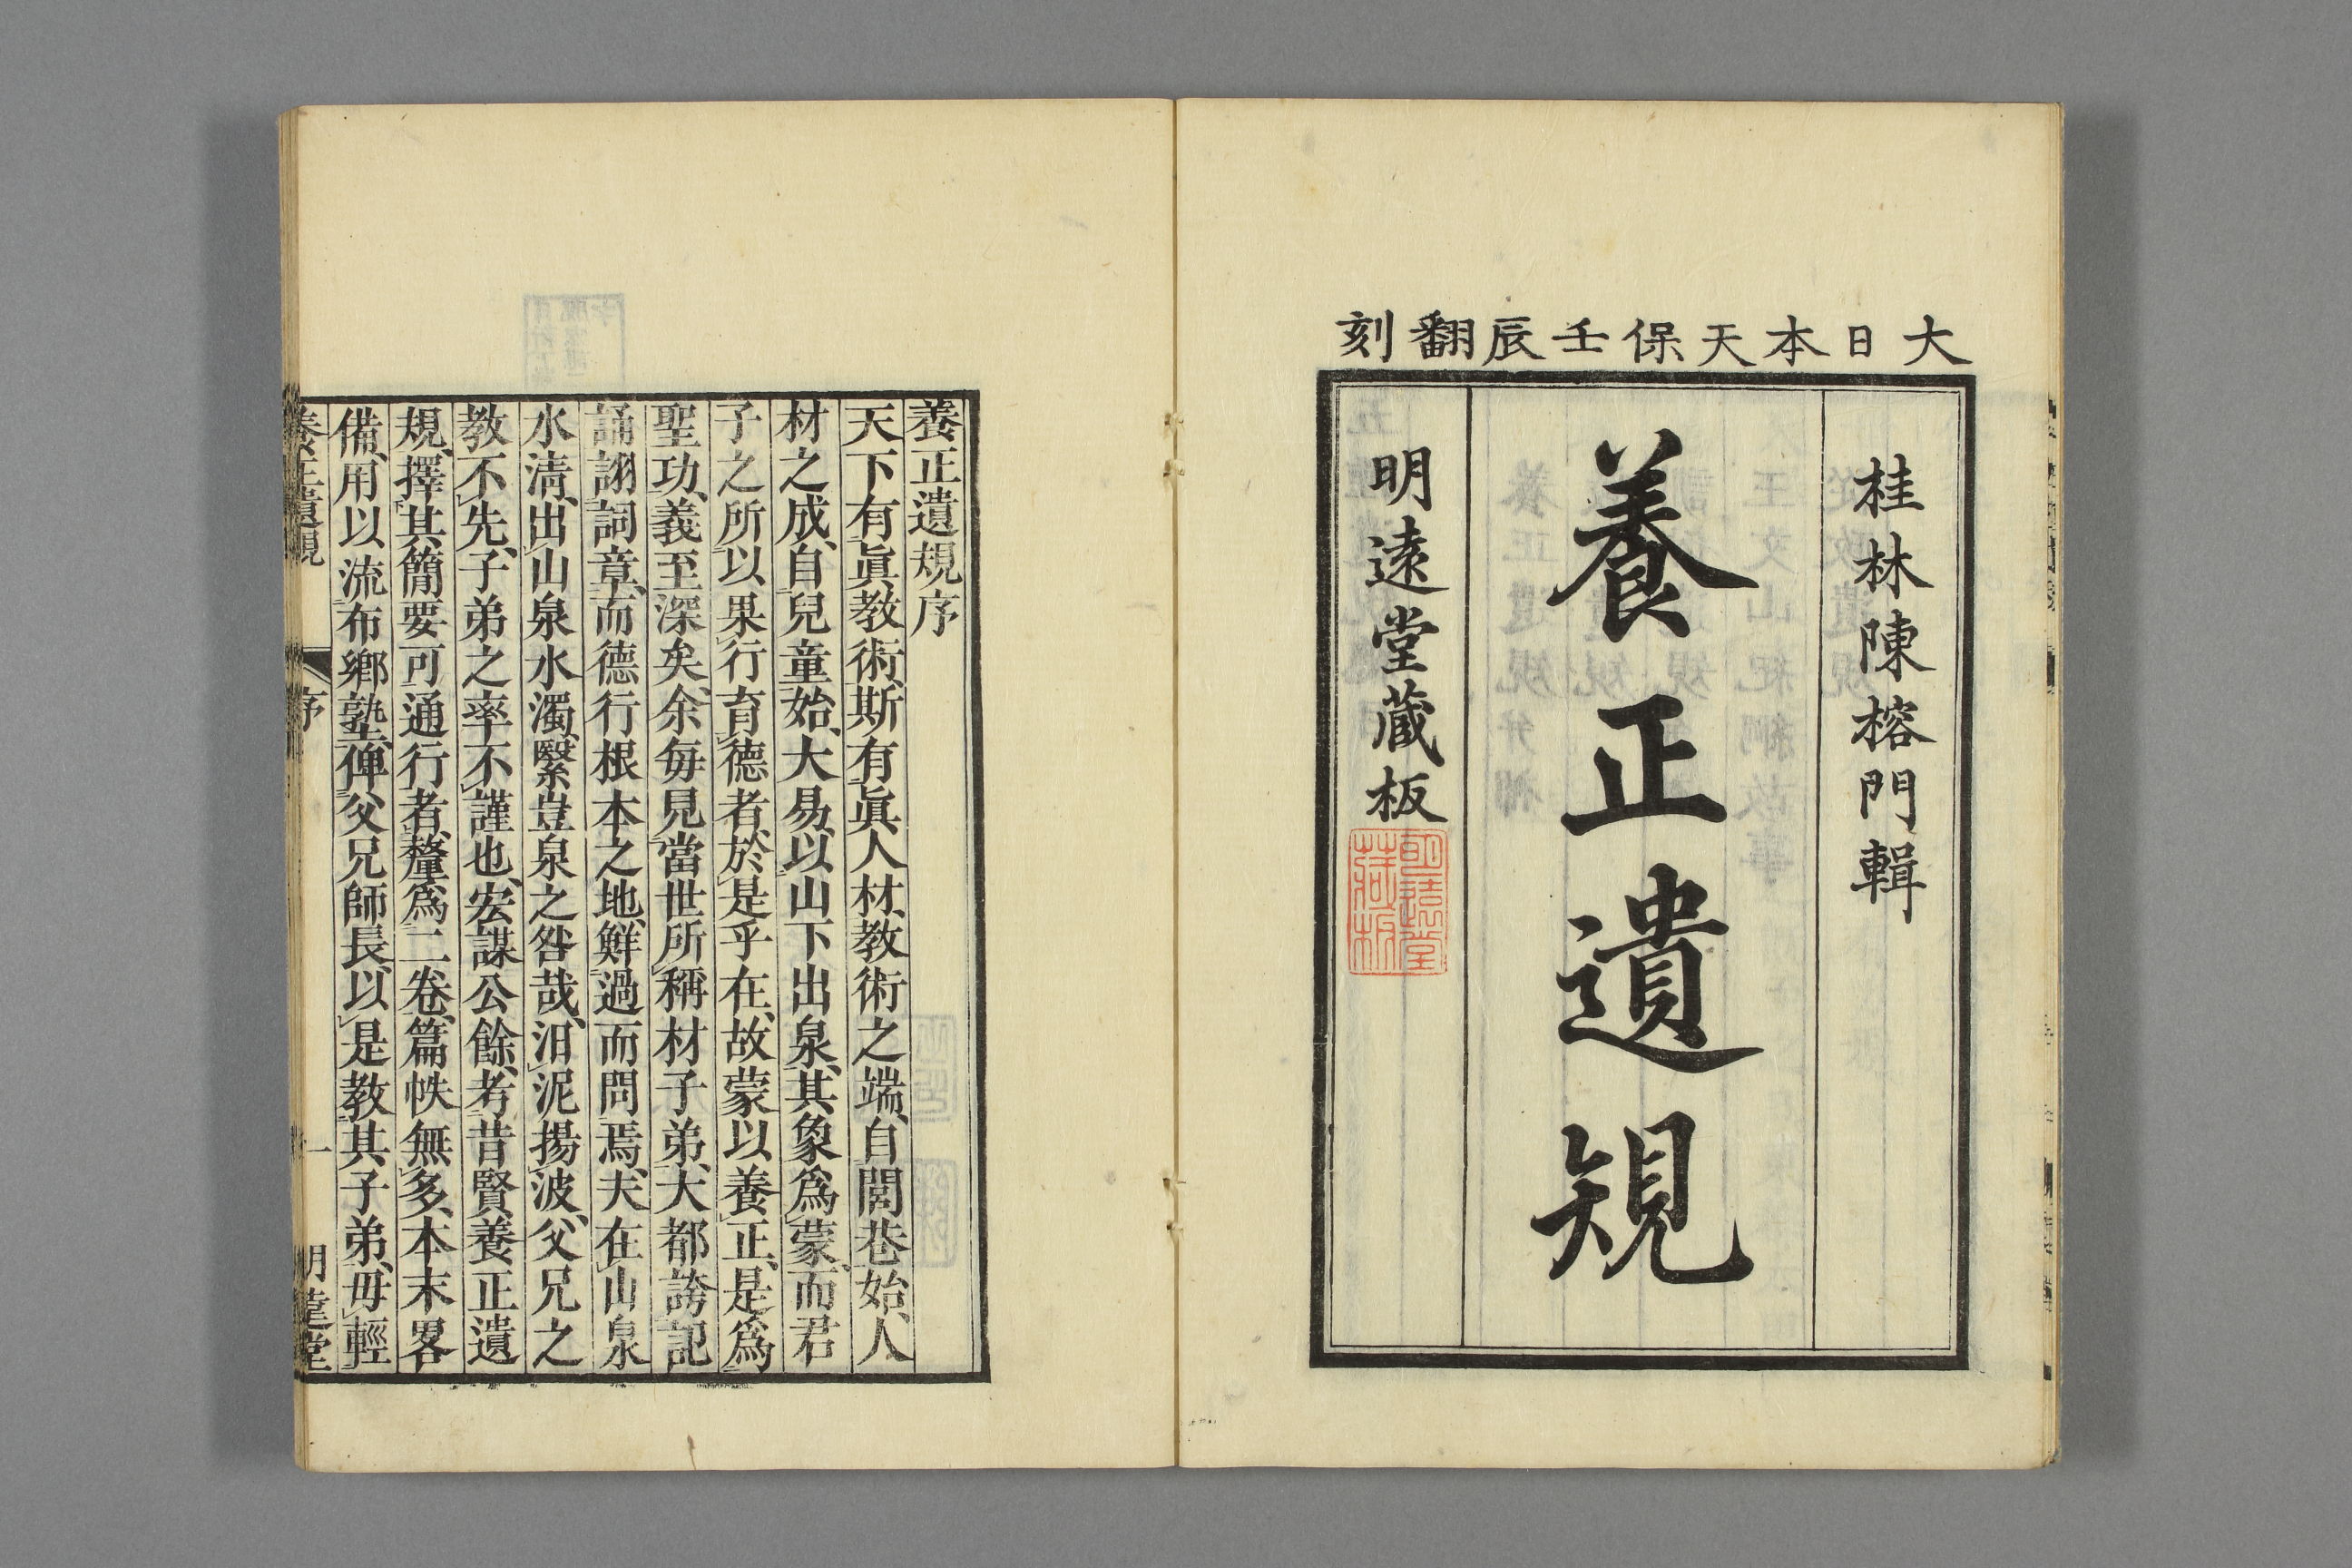 大日本天保壬辰翻刻
桂林陳榕門輯
養正遺規
明遠堂藏板
明遠堂
藏板
養正遺規序
天下有眞教術、斯有眞人材、教術之端、自閭巷始、人
材之成、自兒童始、大易、以山下出泉、其象爲蒙、而君
子之所以果行育德者、於是乎在、故蒙以養正、是爲
聖功、義至深矣、余毎見當世所稱材子弟、大都誇記
誦詡詞章、而德行根本之地、鮮過而問焉、夫在山泉
水淸、出山泉水濁、繄豈泉之咎哉、汨泥揚波、父兄之
教不先、子弟之率不謹也、宏謀公餘、考昔賢養正遺
規、擇其簡要可通行者、釐爲二卷、篇帙無多、本末畧
備、用以流布鄉塾、俾父兄師長、以是教其子弟、毋輕
養正遺規
序
一
明遠堂